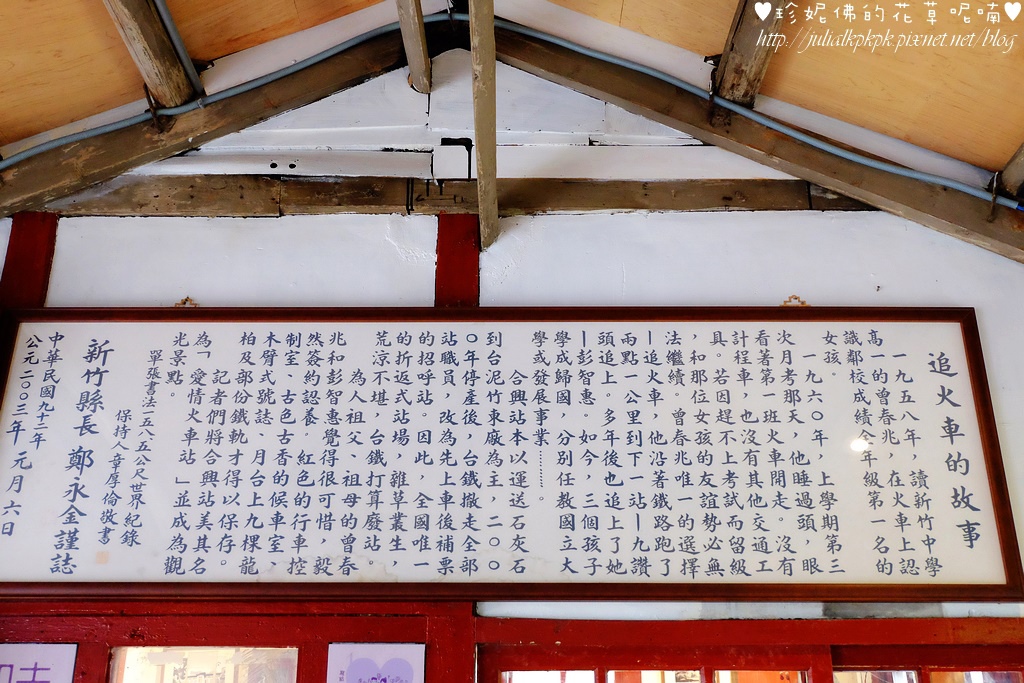 ♥珍妮佛的花草呢喃♥
http://julialkpkpk.pixnet.net/blog
追火車的故事
一九五八年，讀新竹中學
高一的曾春兆，在火車上認
識鄰校成績全年級第一名的
女孩。
一九六〇年，上學期第三
次月考那天，他睡過頭，眼
看著第一班火車開走。沒有
計程車，也沒有其他交通工
具。若因趕不上考試而留級
，和那位女孩的友誼勢必無
法繼續。曾春兆唯一的選擇
—追火車，他沿著鐵路跑了
兩點一公里到下一站—九讚
頭追上。多年後也追上了她
—彭智惠。如今，三個孩子
學成歸國，分別任教國立大
學或發展事業………。
合興站本以運送石灰石
到台泥竹東廠為主，二〇〇
〇年停產後，台鐵撤走全部
站職員，改為先上車後補票
的招呼站。因此，全國唯一
的折返式站場，雜草叢生，
荒涼不堪，台鐵打算廢站。
為人祖父、祖母的曾春
兆和彭智惠覺得很可惜，毅
然簽約認養。紅色的行車控
制室、古色古香的候車室、
木臂式號誌、月台上九棵龍
柏及部份鐵軌才得以保存。
記者們將合興站美其名
為「愛情火車站」並成為觀
光景點。
單張書法一五八五公尺世界紀錄
保持人章厚倫敬書
新竹縣長 鄭永金謹誌
中華民國九十二年
公元二〇〇三年 元月六日